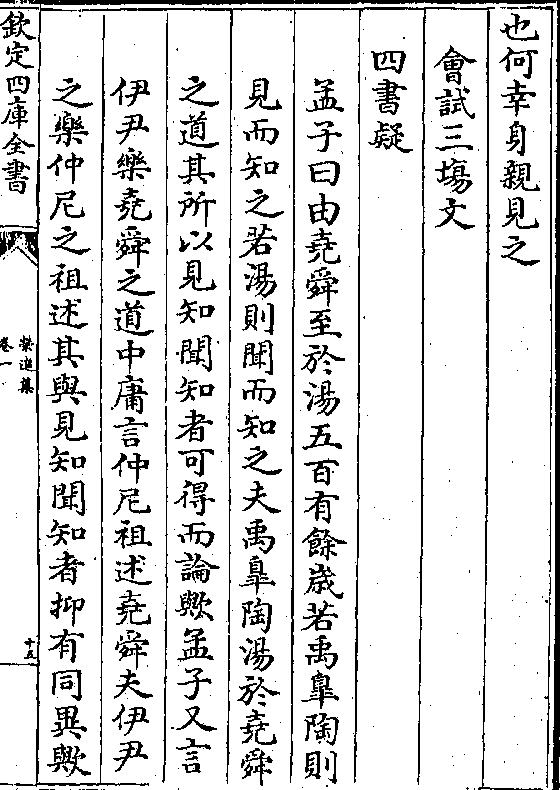 也何幸身親見之
會試三塲文
四書疑
孟子曰由堯舜至於湯五百有餘歳若禹臯陶則
見而知之若湯則聞而知之夫禹臯陶湯於堯舜
之道其所以見知聞知者可得而論歟孟子又言
伊尹樂堯舜之道中庸言仲尼祖述堯舜夫伊尹
之樂仲尼之祖述其與見知聞知者抑有同異歟
欽定四庫全書
榮進集
卷一
十五